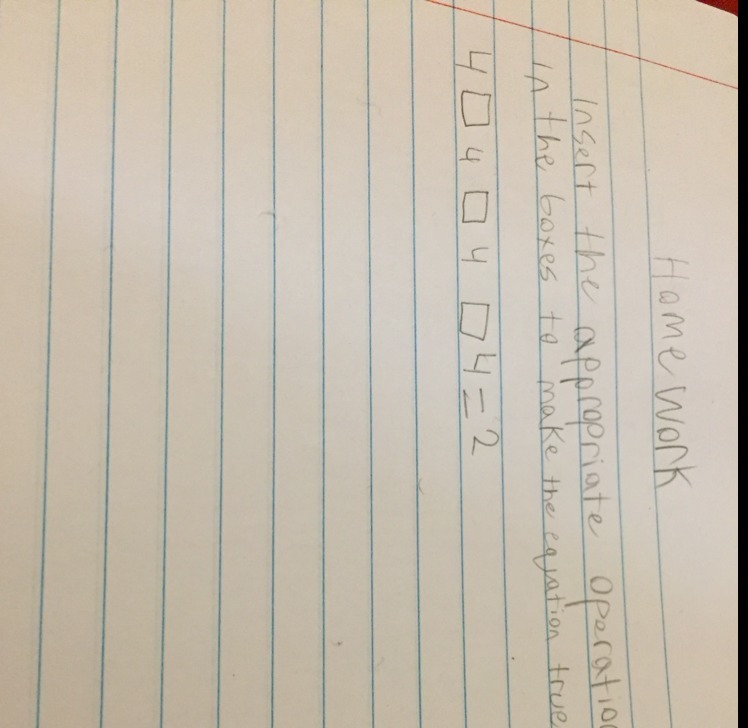 Homework
Insert the appropriate operation
in the boxes to make the equation true
4 □ 4 □ 4 □ 4 = 2